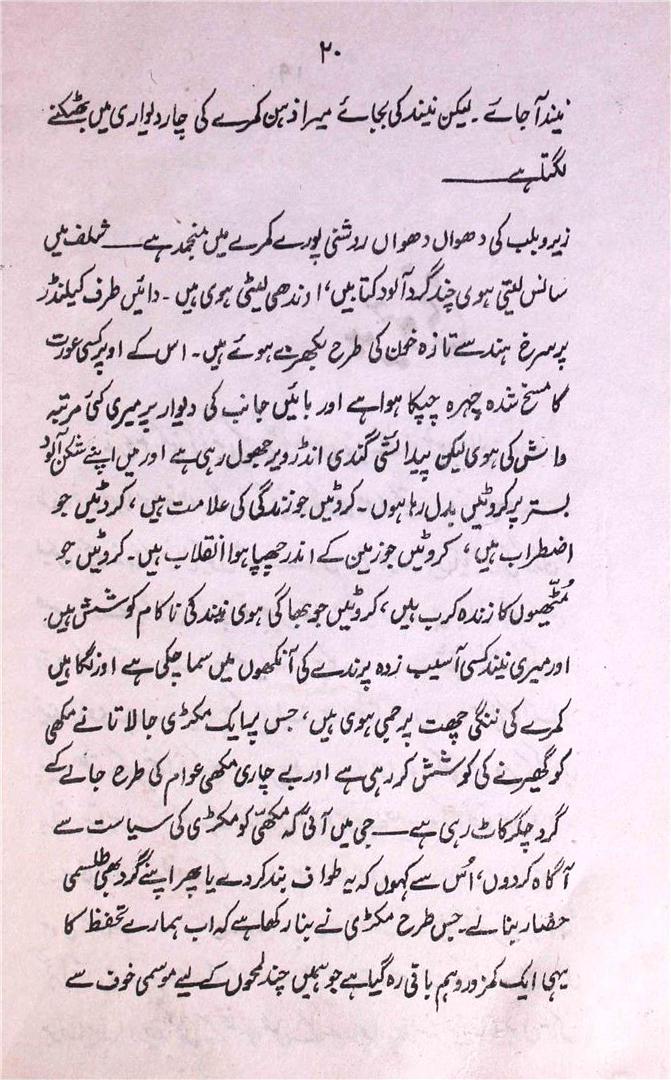 ۲۰
نیند آ جائے ۔ لیکن نیند کی بجائے میرا ذہن کمرے کی چار دیواری میں بھٹکنے
لگتا ہے ——
زیرو بلب کی دھواں دھواں روشنی پورے کمرے میں منجمد ہے —— شلف میں
سانس لیتی ہوی چند گرد آلود کتابیں، اوندھی لیٹی ہوی ہیں ۔ دائیں طرف کیلنڈر
پر سرخ ہندسے تازہ خون کی طرح بکھرے ہوئے ہیں ۔ اس کے اوپر کسی عورت
کا مسخ شدہ چہرہ چپکا ہوا ہے اور بائیں جانب کی دیوار پر میری کئی مرتبہ
واش کی ہوی لیکن پیدائشی گندی انڈرویر جھول رہی ہے اور میں اپنے شکن آلود
بستر پر کروٹیں بدل رہا ہوں ۔ کروٹیں جو زندگی کی علامت ہیں، کروٹیں جو
اضطراب ہیں، کروٹیں جو زمین کے اندر چھپا ہوا انقلاب ہیں ۔ کروٹیں جو
مُٹھیوں کا زندہ کرب ہیں، کروٹیں جو بھاگی ہوی نیند کی ناکام کوشش ہیں۔
اور میری نیند کسی آسیب زدہ پرندے کی آنکھوں میں سما چکی ہے اور نگاہیں
کمرے کی ننگی چھت پر جمی ہوی ہیں، جس پر ایک مکڑی جالا تانے مکھی
کو گھیرنے کی کوشش کر رہی ہے اور بے چاری مکھی عوام کی طرح جالے کے
گرد چکر کاٹ رہی ہے —— جی میں آئی کہ مکھی کو مکڑی کی سیاست سے
آگاہ کردوں، اُس سے کہوں کہ یہ طواف بند کردے یا پھر اپنے گرد بھی طلسمی
حصار بنالے ۔ جس طرح مکڑی نے بنا رکھا ہے کہ اب ہمارے تحفظ کا
یہی ایک کمزور وہم باقی رہ گیا ہے جو ہمیں چند لمحوں کے لیے موسمی خوف سے